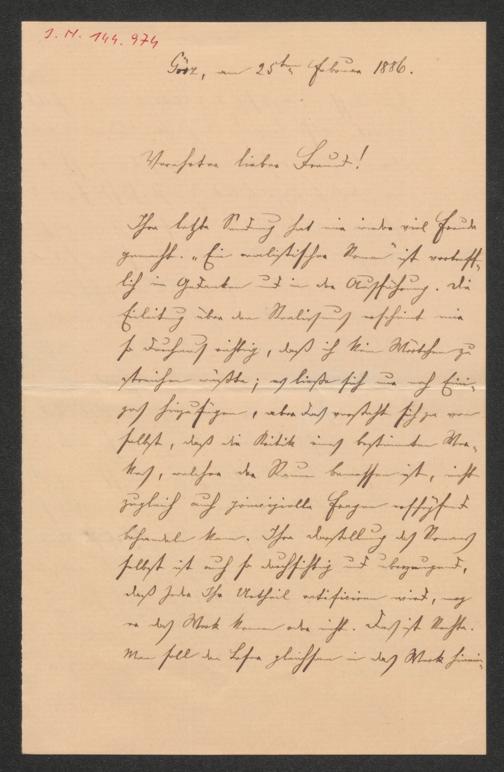 J. N. 144.974
Görz, am 25ten Februar 1886.
Verehrter lieber Freund!
Ihre letzte Sendung hat mir wieder viel Freude
gemacht. „Ein realistischer Roman“ ist vortreff-
lich in Gedanken und in der Ausführung. Die
Einleitung über den Realismus erscheint mir
so durchaus richtig, daß ich kein Wörtchen zu
streichen wüßte; es ließe sich nur noch Eini-
ges hinzufügen, aber das versteht sich ja von
selbst, daß die Kritik eines bestimmten Wer-
kes, welcher der Raum bemessen ist, nicht
zugleich auch principielle Fragen erschöpfend
behandeln kann. Ihre Darstellung des Romans
selbst ist auch so durchsichtig und überzeugend,
daß Jeder Ihr Urtheil ratificiren wird, mag
er das Werk kennen oder nicht. Das ist das Rechte.
Man soll den Leser gleichsam in das Werk hinein-